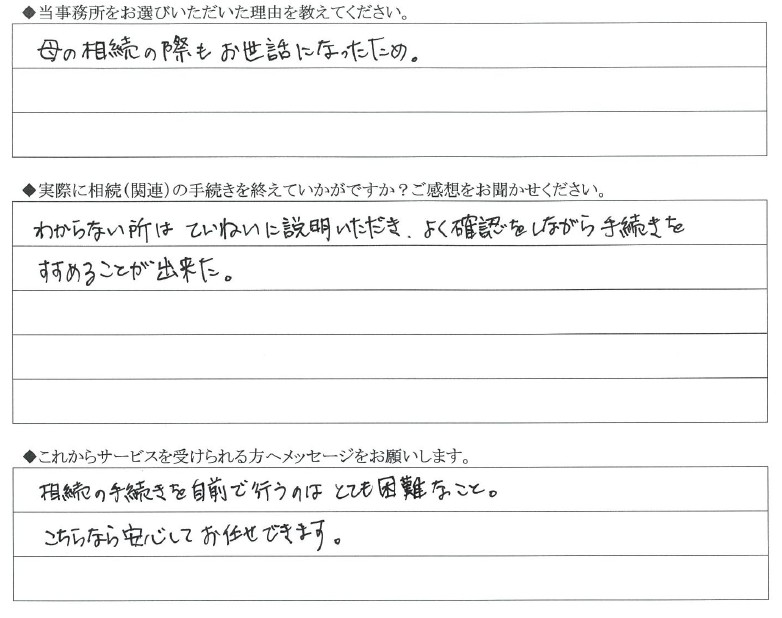 ◆当事務所をお選びいただいた理由を教えてください。
母の相続の際もお世話になったため。
◆実際に相続(関連)の手続きを終えていかがですか？ご感想をお聞かせください。
わからない所は ていねいに説明いただき、よく確認をしながら手続きを
すすめることが出来た。
◆これからサービスを受けられる方へメッセージをお願いします。
相続の手続きを自前で行うのは とても困難なこと。
こちらなら安心して お任せできます。